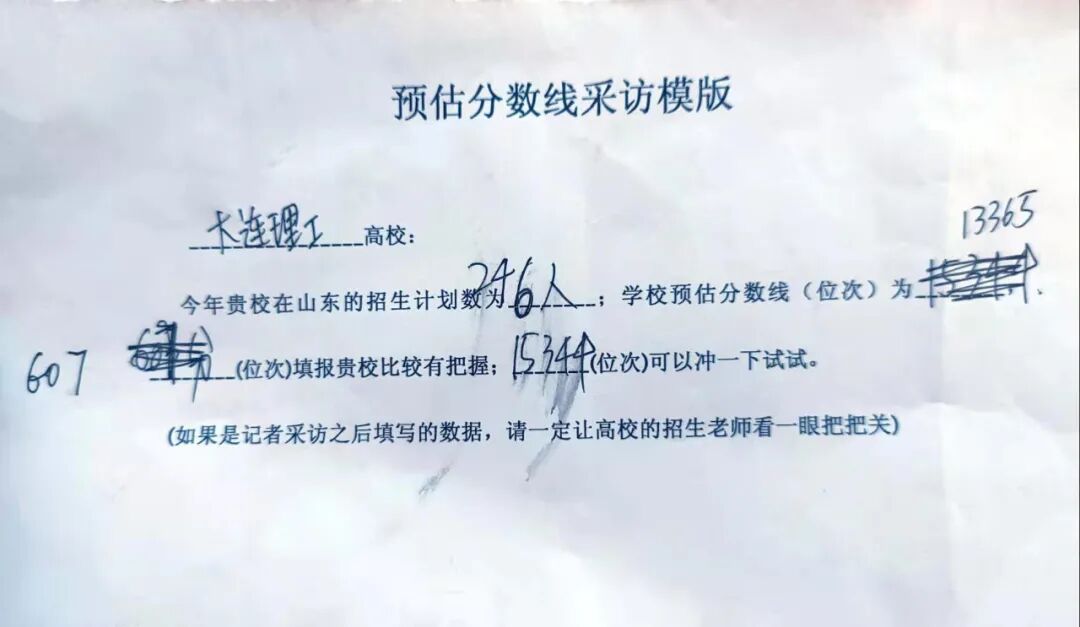 预估分数线采访模版
大连理工高校：
13365
今年贵校在山东的招生计划数为246人；学校预估分数线（位次）为
607 (位次)填报贵校比较有把握；15344(位次)可以冲一下试试。
(如果是记者采访之后填写的数据，请一定让高校的招生老师看一眼把把关)